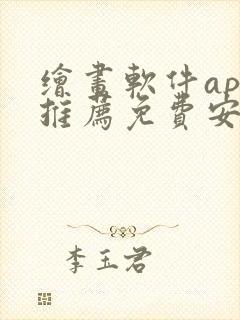 繪畫軟件ap
推薦免費安
李玉君